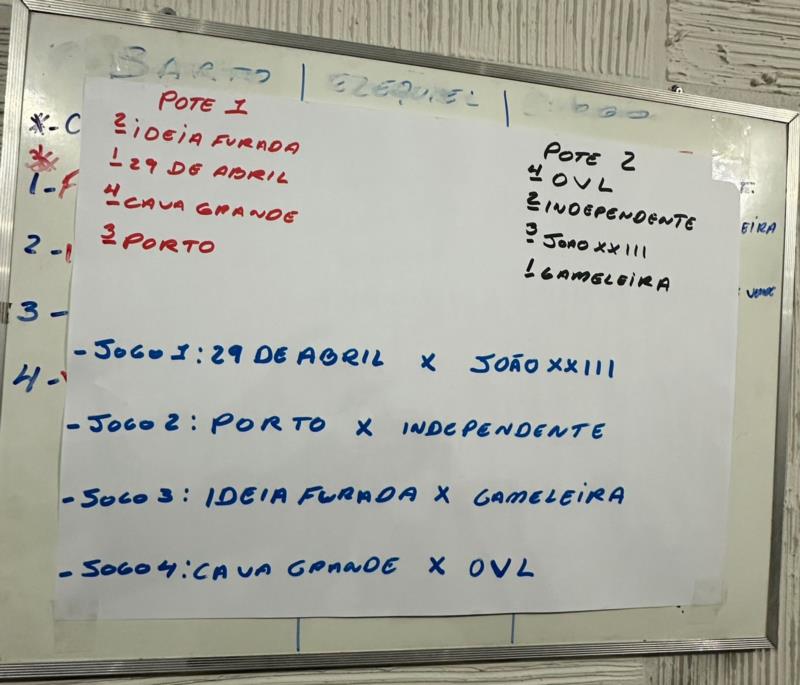 BARTO | EZEQUIEL |
POTE 1
2 IDEIA FURADA
1 29 DE ABRIL
4 CAVA GRANDE
3 PORTO
POTE 2
4 OVL
2 INDEPENDENTE
3 JOAO XXIII
1 GAMELEIRA
*-C
*
1-F
2-
3-
4-
EIRA
- JOGO 1: 29 DE ABRIL X JOÃO XXIII
- JOGO 2: PORTO X INDEPENDENTE
- JOGO 3: IDEIA FURADA X GAMELEIRA
- JOGO 4: CAVA GRANDE X OVL